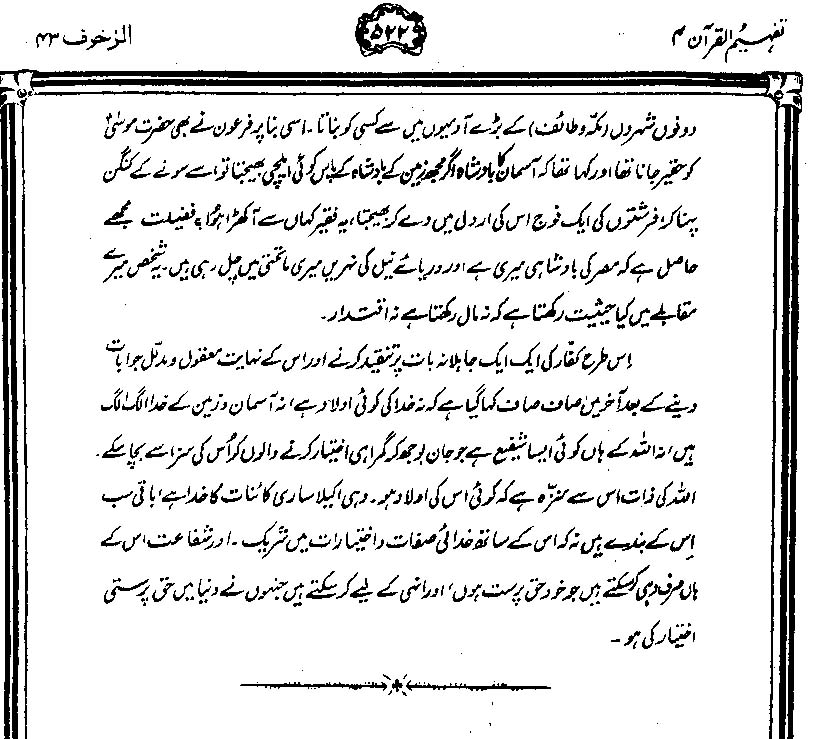 تفہیم القرآن ۴
۵۲۲
الزخرف ۴۳
دونوں شہروں (مکہ و طائف) کے بڑے آدمیوں میں سے کسی کو بناتا۔ اسی بنا پر فرعون نے بھی حضرت موسیٰؑ
کو حقیر جانا تھا اور کہا تھا کہ آسمان کا بادشاہ اگر مجھ زمین کے بادشاہ کے پاس کوئی ایلچی بھیجتا تو اسے سونے کے کنگن
پہنا کر، فرشتوں کی ایک فوج اس کی اردلی میں دے کر بھیجتا، یہ فقیر کہاں سے آ کھڑا ہوا؟ فضیلت مجھے
حاصل ہے کہ مصر کی بادشاہی میری ہے اور دریائے نیل کی نہریں میری ماتحتی میں چل رہی ہیں۔ یہ شخص میرے
مقابلے میں کیا حیثیت رکھتا ہے کہ نہ مال رکھتا ہے نہ اقتدار۔
اِس طرح کفّار کی ایک ایک جاہلانہ بات پر تنقید کرنے اور اس کے نہایت معقول و مدلّل جوابات
دینے کے بعد آخر میں صاف صاف کہا گیا ہے کہ نہ خدا کی کوئی اولاد ہے، نہ آسمان و زمین کے خدا الگ الگ
ہیں، نہ اللہ کے ہاں کوئی ایسا شفیع ہے جو جان بوجھ کر گمراہی اختیار کرنے والوں کو اُس کی سزا سے بچا سکے۔
اللہ کی ذات اس سے منزّہ ہے کہ کوئی اس کی اولاد ہو۔ وہی اکیلا ساری کائنات کا خدا ہے، باقی سب
اِس کے بندے ہیں نہ کہ اس کے ساتھ خدائی صفات و اختیارات میں شریک۔ اور شفاعت اس کے
ہاں صرف وہی کر سکتے ہیں جو خود حق پرست ہوں، اور انہی کے لیے کر سکتے ہیں جنہوں نے دنیا میں حق پرستی
اختیار کی ہو۔